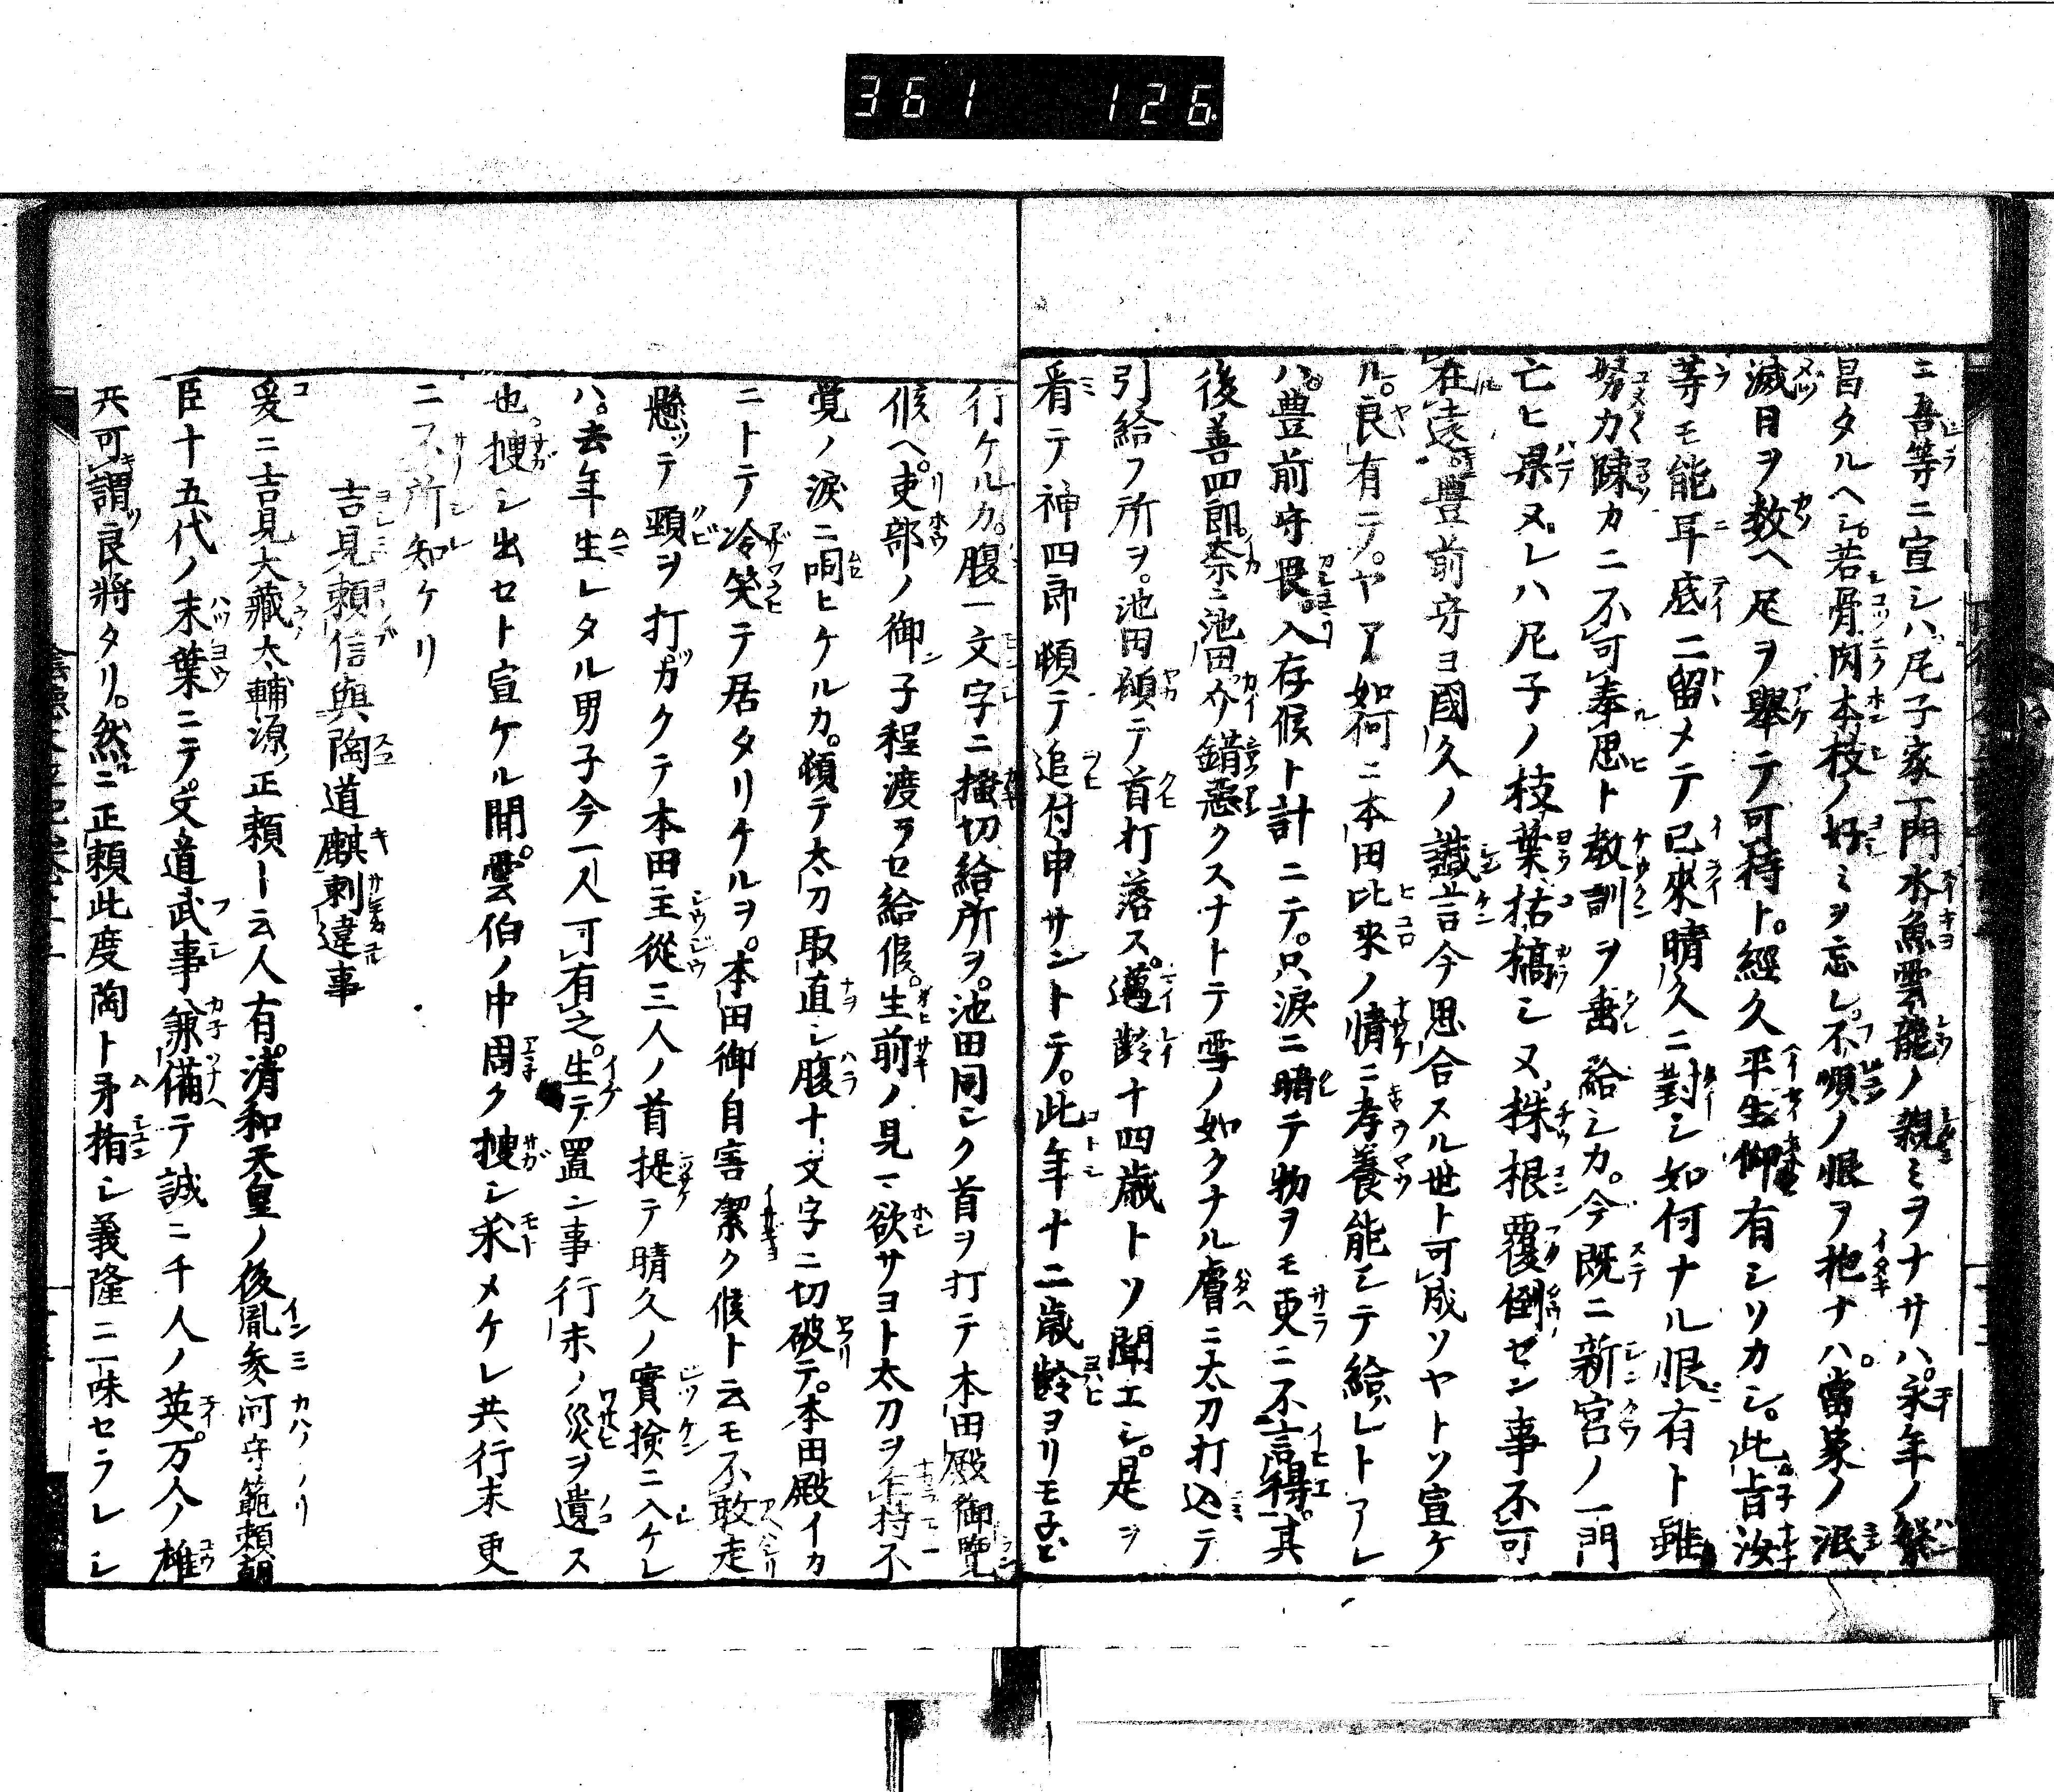 361 126
ニ吾等ニ宣シハ尼子家一門水魚雲龍ノ親ミヲナサハ。永年ノ繁
昌タルヘシ。若骨肉本枝ノ好ミヲ忘レ。不順ノ恨ヲ抱ナハ。當家ノ泯
滅日ヲ数ヘ足ヲ擧テ可待ト。經久平生仰有シソカシ。此旨汝
等モ能耳底ニ留メテ已來晴久ニ對シ如何ナル恨有ト雖
努力踈カニ不可奉思ト教訓ヲ垂給シカ。今既ニ新宮ノ一門
亡ヒ果ヌレハ尼子ノ枝葉枯槁シ又株根覆倒セン事不可
在遠豊前守ヨ國久ノ讖言今思合スル世ト可成ソヤトソ宣ケ
ル。良有テ。ヤア如何ニ本田比來ノ情ニ孝養能シテ給レトアレ
ハ。豊前守畏入存候ト計ニテ。只涙ニ暗テ物ヲモ更ニ不言得。其
後善四郎。奈ニ池田介錯惡クスナトテ雪ノ如クナル膚ニ太刀打込テ
引給フ所ヲ。池田頓テ首打落ス。邁齡十四歳トソ聞エシ。是ヲ
看テ神四郎頓テ追付申サントテ。此年十二歳齡ヨリモ
行ケルカ。腹一文字ニ搔切給所ヲ。池田同シク首ヲ打テ本田殿御覽
候ヘ。吏部ノ御子程渡ラセ給候。生前ノ見マ欲サヨト太刀ヲ持不
覺ノ涙ニ咽ヒケルカ。頓テ太刀取直シ腹十文字ニ切破テ。本田殿イカ
ニトテ冷笑テ居タリケルヲ。本田御自害潔ク候ト云モ不敢走
懸ッテ頸ヲ打ガクテ本田主從三人ノ首提テ晴久ノ實撿ニ入ケレ
ハ。去年生レタル男子今一人可有之。生テ置ン事行末ノ災ヲ遺ス
也。捜シ出セト宣ケル間。雲伯ノ中周ク捜シ求メケレ共行末更
ニ不所知ケリ
吉見賴信與陶道麒刺違事
爰ニ吉見大藏大輔源正賴ト云人有。清和天皇ノ後胤參河守範賴朝
臣十五代ノ末葉ニテ。文道武事兼備テ誠ニ千人ノ英。万人ノ雄
共可謂良將タリ。然ニ正賴此度陶ト矛楯シ義隆ニ一味セラレシ